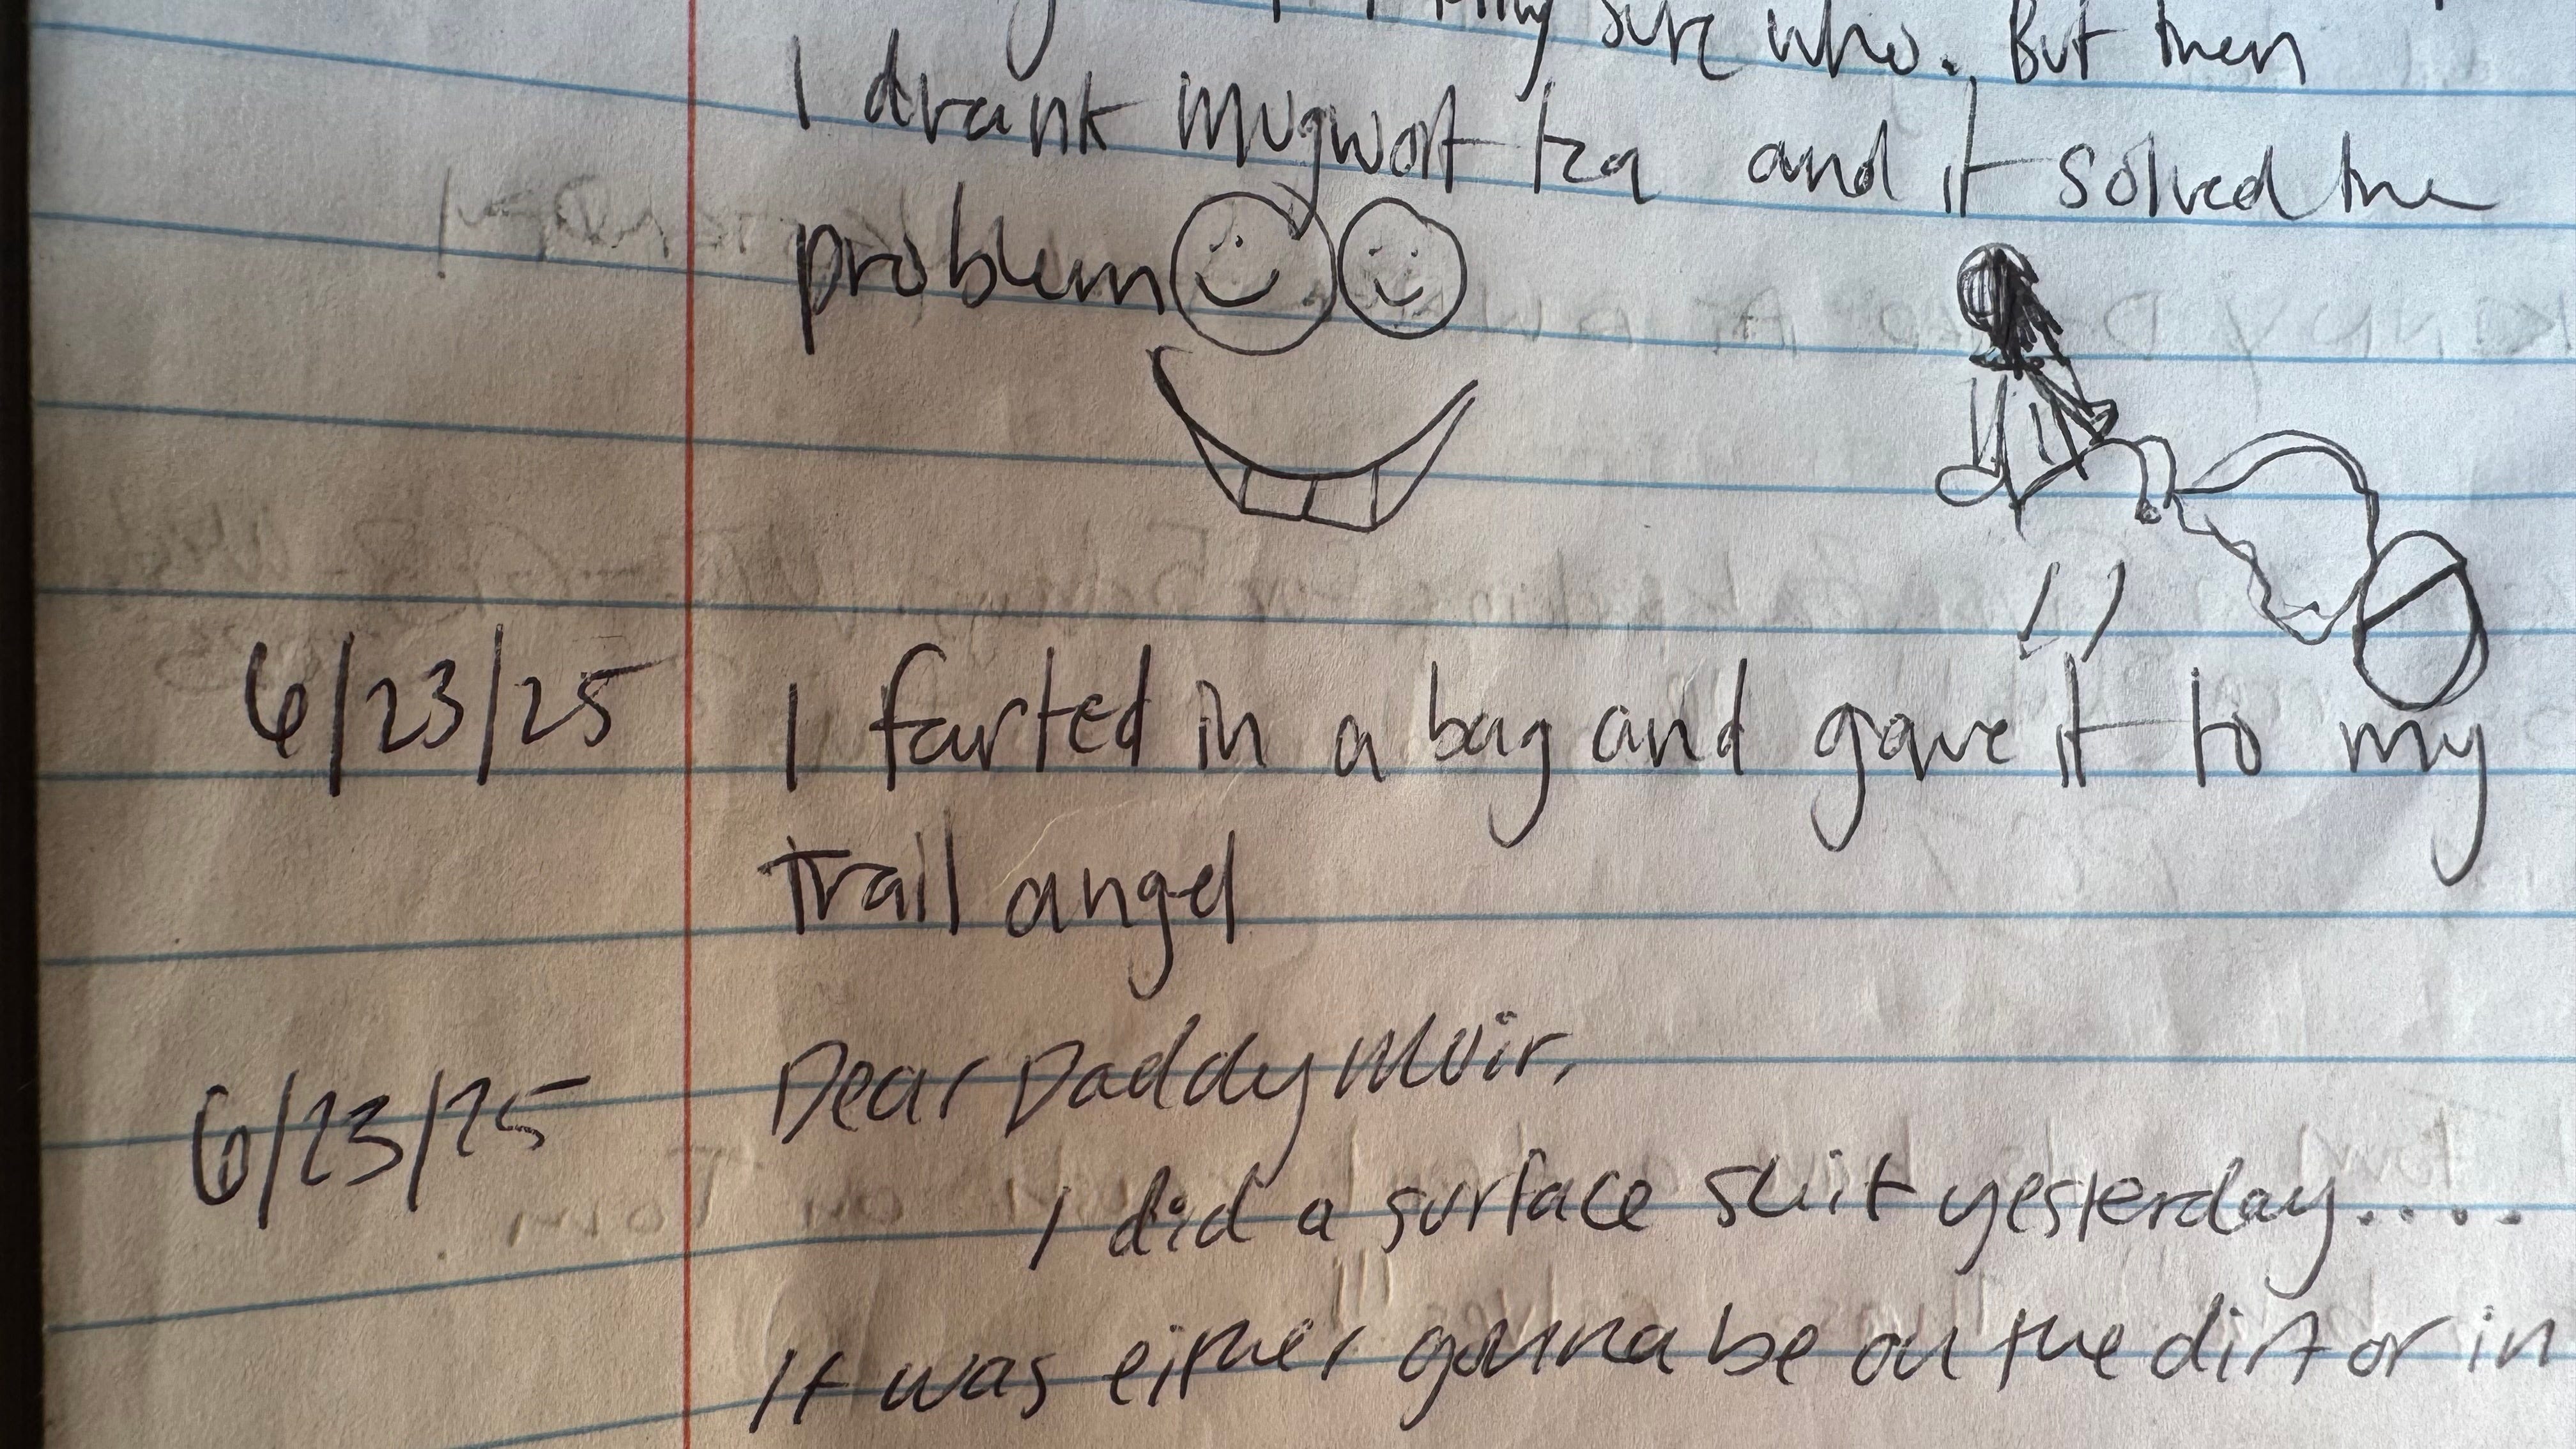 sure who. But then
I drank mugwort tea and it solved the
problem
6/23/25 I farted in a bag and gave it to my
trail angel
6/23/25 Dear Daddy Muir,
I did a surface shit yesterday....
It was either gonna be on the dirt or in